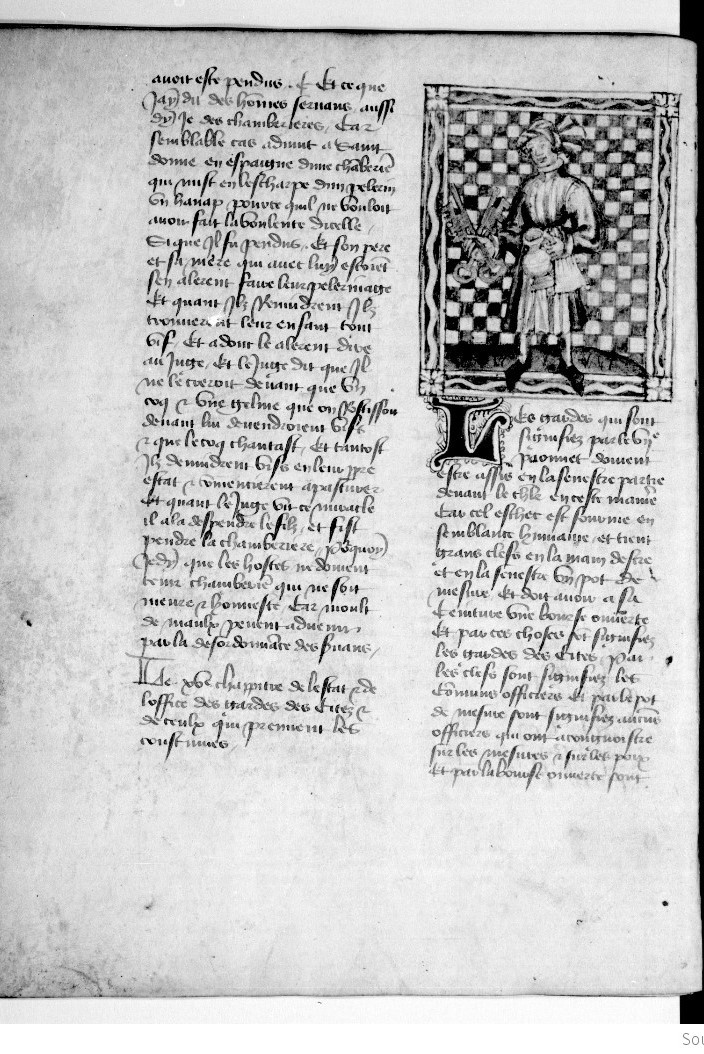 avoit este pendus. Et ce que
J'ay dit des hom̄es servans aussi
dy Je des chamberieres, Car
semblable cas advint a Saint
donne en espaigne dune chāberiē
qui mist en lescharpe dun pelerin
vn hanap, pource quil ne vouloit
avoir fait la voulente dicelle,
Si que Jl fu pendus, Et son pere
et sa mere qui avec luy estoiēt
sen alerent faire leur pelerinaige
Et quant Jlz Revindrent Jlz
trouverēt leur enfant tout
vif, Et adont le alerent dire
au Juge, Et le Juge dit que Jl
ne le creroit devant que vn
coq & vne geline que on Rostissoit
devant lui devendroient vifs
& que le coq chantast, Et tantost
Jlz devindrent vifs en leur ppre
estat & cōmencierent a pasturer
Et quant le Juge vit ce miracle
il ala despendre le filz, et fist
pendre la chamberiere, Pourquoy
Je dy que les hostes ne doivent
tenir chamberiē qui ne soit
meure & honneste Car moult
de maulx pevent advenir
par la desordonnāce des svans,
Le xve chappitre de lestat & de
loffice des gardes des Citez &
de ceulx qui prennent les
coustumes,
Les gardes qui sont
signifiez par le viie
paonnet doivent
estre assis en la senestre partie
devant le chlr en ceste maniē
Car cel eschec est fourme en
semblance humaine, et tient
grans clefs en la main destre
et en la senestre vn pot de
mesure, et doit avoir a sa
Ceinture vne bourse ouverte
Et par ces choses sōt signifiez
les gardes des Cites, Par
les clefs sont signifiez les
Cōmuns officiers Et par le pot
de mesure sont signifiez aucūs
officiers qui ont a congnoistre
sur les mesures & sur les poix
Et par la bourse ouverte sont
Sou